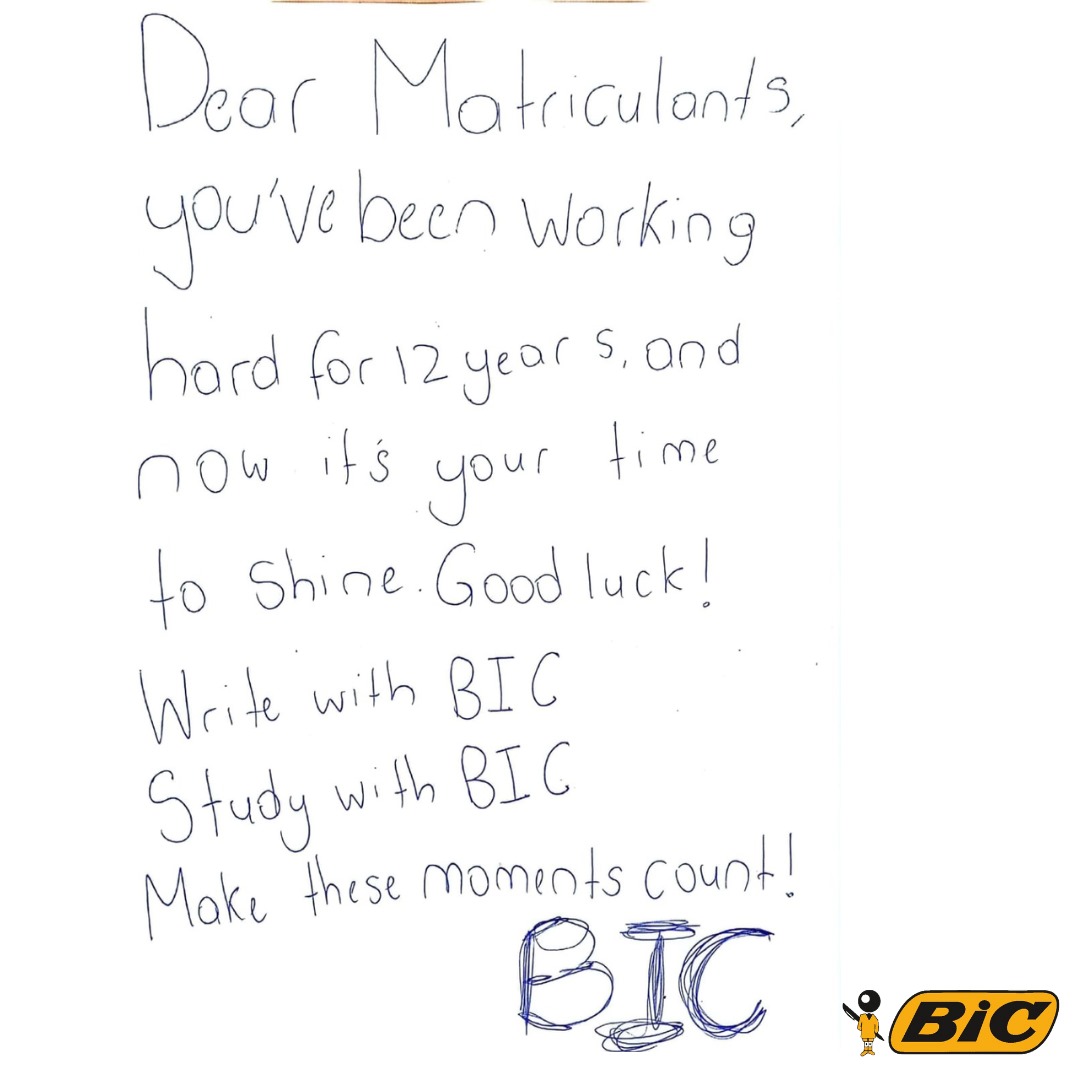 Dear Matriculants,
you've been working
hard for 12 years, and
now it's your time
to shine. Good luck!
Write with BIC
Study with BIC
Make these moments count!
BIC
BiC